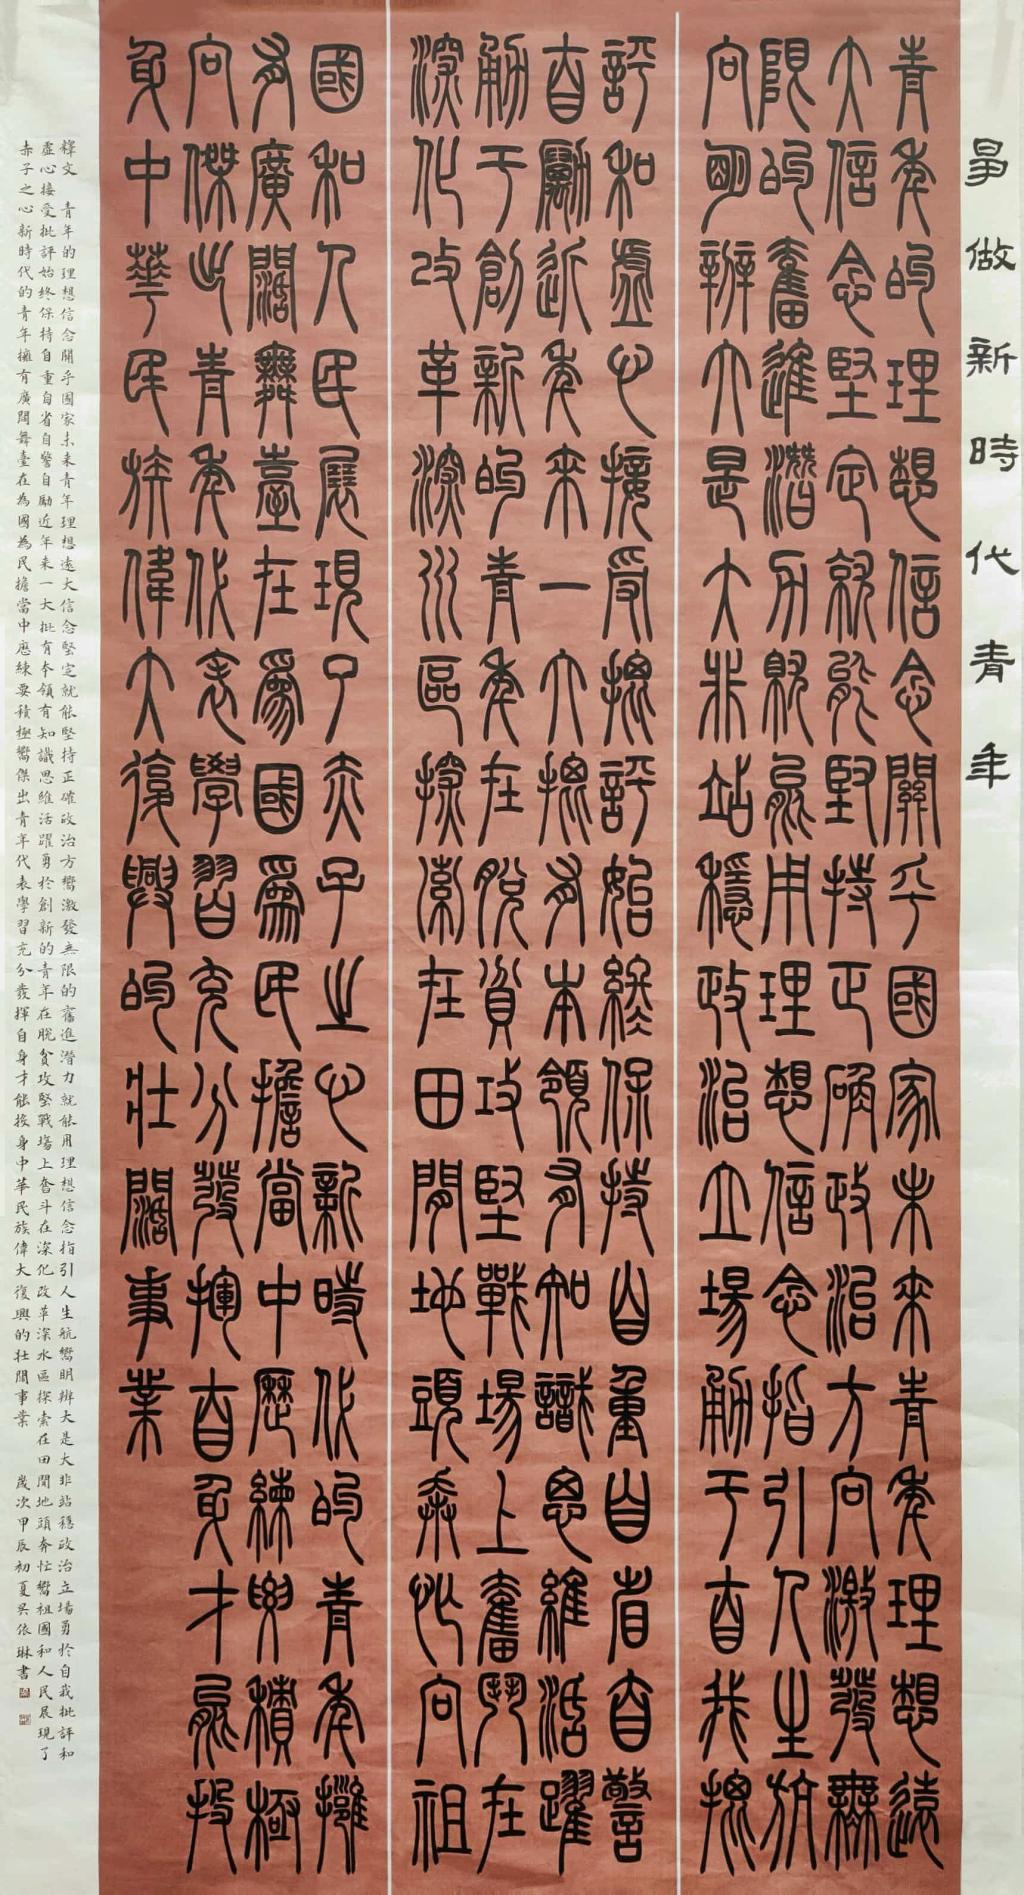 爭做新時代青年
青年的理想信念關乎國家未來青年理想遠
大信念堅定就能堅持正确政治方向激發無
限的奮進潛力就能用理想信念指引人生航
向明辨大是大非站穩政治立場勇于自我批
評和虛心接受批評始終保持自重自省自警
自勵近年來一大批有本領有知識思維活躍
勇于創新的青年在脫貧攻堅戰場上奮鬥在
深化改革深水區探索在田間地頭奔忙向祖
國和人民展現了赤子之心新時代的青年擁
有廣闊舞臺在爲國爲民擔當中歷練與積極
向傑出青年代表學習充分發揮自身才能投
身中華民族偉大復興的壯闊事業
釋文 青年的理想信念關乎國家未来青年理想遠大信念堅定就能堅持正確政治方嚮激發無限的奮進潛力就能用理想信念指引人生航嚮明辨大是大非站穩政治立場勇於自我批評和
虛心接受批評始終保持自重自省自警自勵近年来一大批有本領有知識思維活躍勇於創新的青年在脫貧攻堅戰場上奮斗在深化改革深水區探索在田間地頭奔忙嚮祖國和人民展現了
赤子之心新時代的青年擁有廣闊舞臺在為國為民擔當中歷練要積極嚮傑出青年代表學習充分發揮自身才能投身中華民族偉大復興的壯闊事業 歲次甲辰初夏吴依琳書